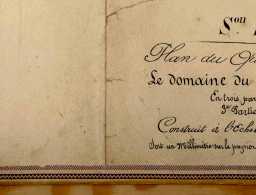 Sou
Plan du
Le domaine du
En trois par
1re Partie
Construit à l'Echel
Soit un Millimètre sur le pignon